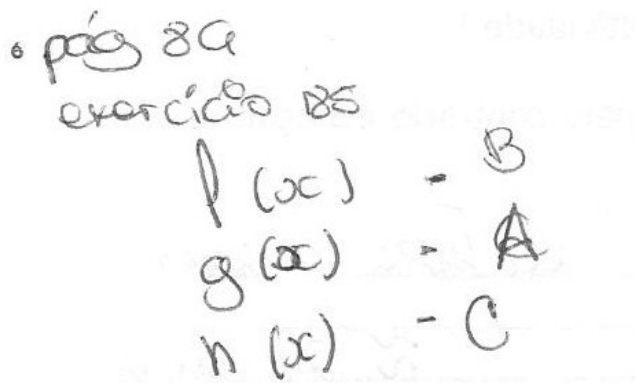 • pág 89
exercício 85
f(x) - B
g(x) - A
h(x) - C